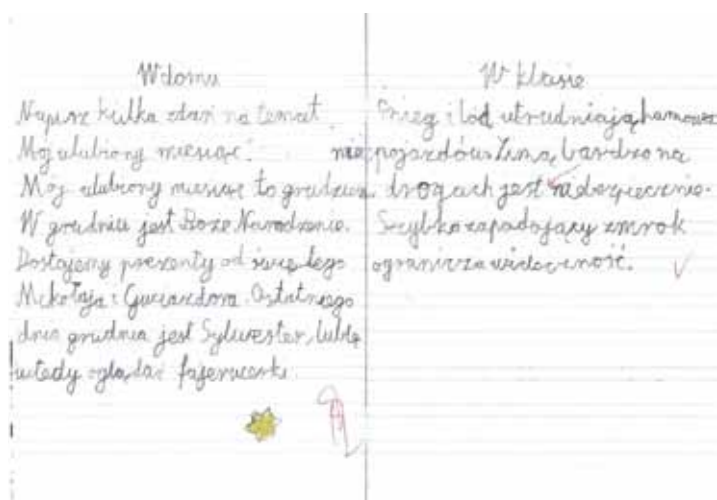 W domu
Napisz kilka zdań na temat
Mój ulubiony miesiąc.
Mój ulubiony miesiąc to grudzień.
W grudniu jest Boże Narodzenie.
Dostajemy prezenty od świętego
Mikołaja i Gwiazdora. Ostatniego
dnia grudnia jest Sylwester, lubię
wtedy oglądać fajerwerki.
W klasie
Śnieg i lód utrudniają hamowa
nie pojazdów. Zimą bardzo na
drogach jest niebezpiecznie.
Szybko zapadający zmrok
ogranicza widoczność.